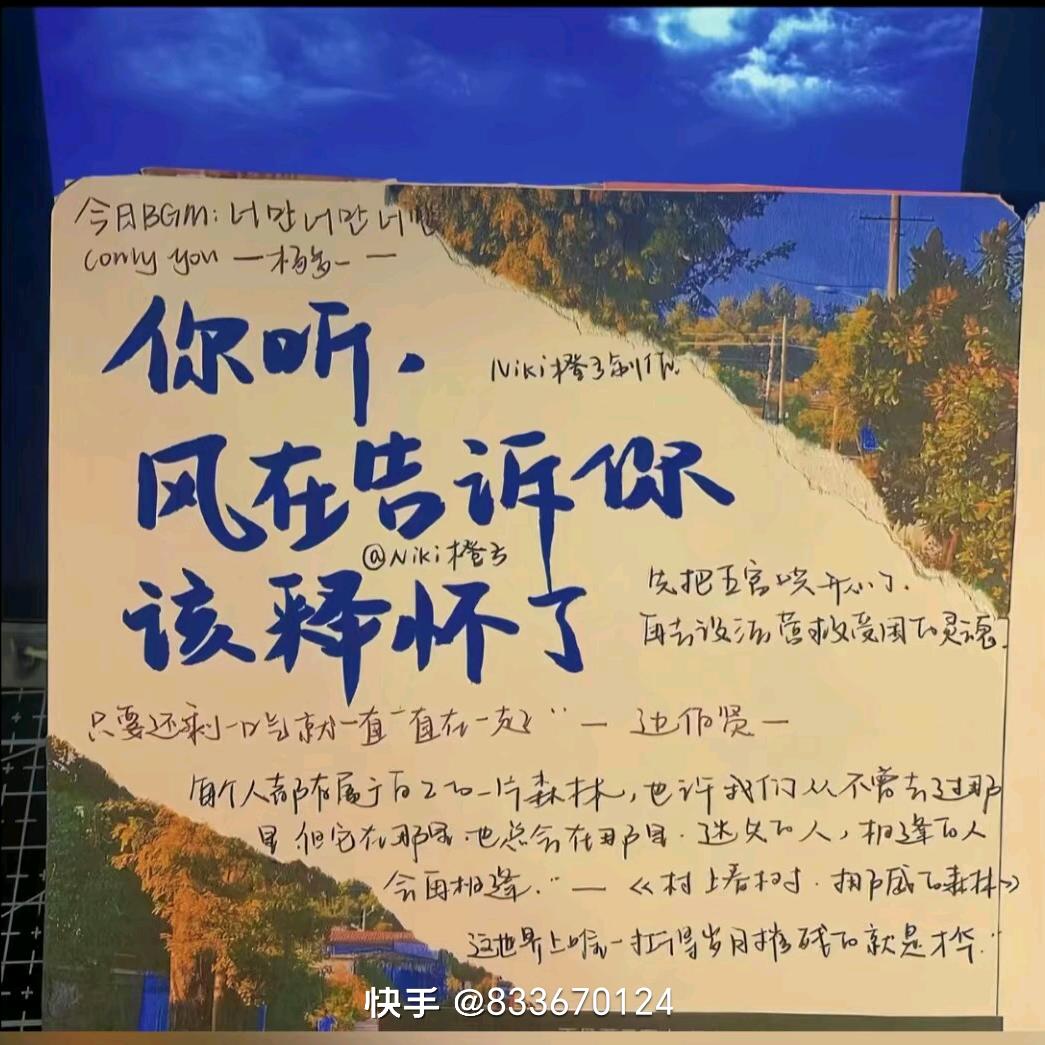 今日BGM:너만 너만 너만
(only you — 杨多一 —
你听,
Niki橙子制作.
风在告诉你
@Niki橙子
该释怀了
先把五官哄开心了.
再去设法营救受困的灵魂.
只要还剩一口气就一直一直在一起" — 边伯贤 —
每个人都有属于自己的一片森林,也许我们从不曾去过那
里.但它在那里.也总会在那里.迷失的人,相逢的人
会再相逢."—《村上春树.挪威的森林》
这世界上唯一扛得岁月摧残的就是才华."
快手 @833670124